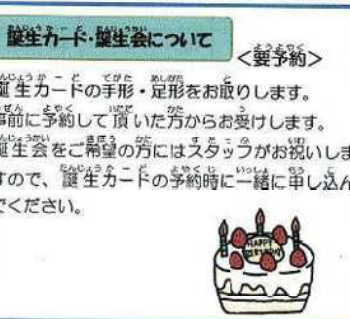 誕生カード・誕生会について
＜要予約＞
誕生カードの手形・足形をお取りします。
事前に予約して頂いた方からお受けします。
誕生会をご希望の方にはスタッフがお祝いしま
すので、誕生カードの予約時に一緒に申し込ん
でください。
HAPPY
BIRTHDAY